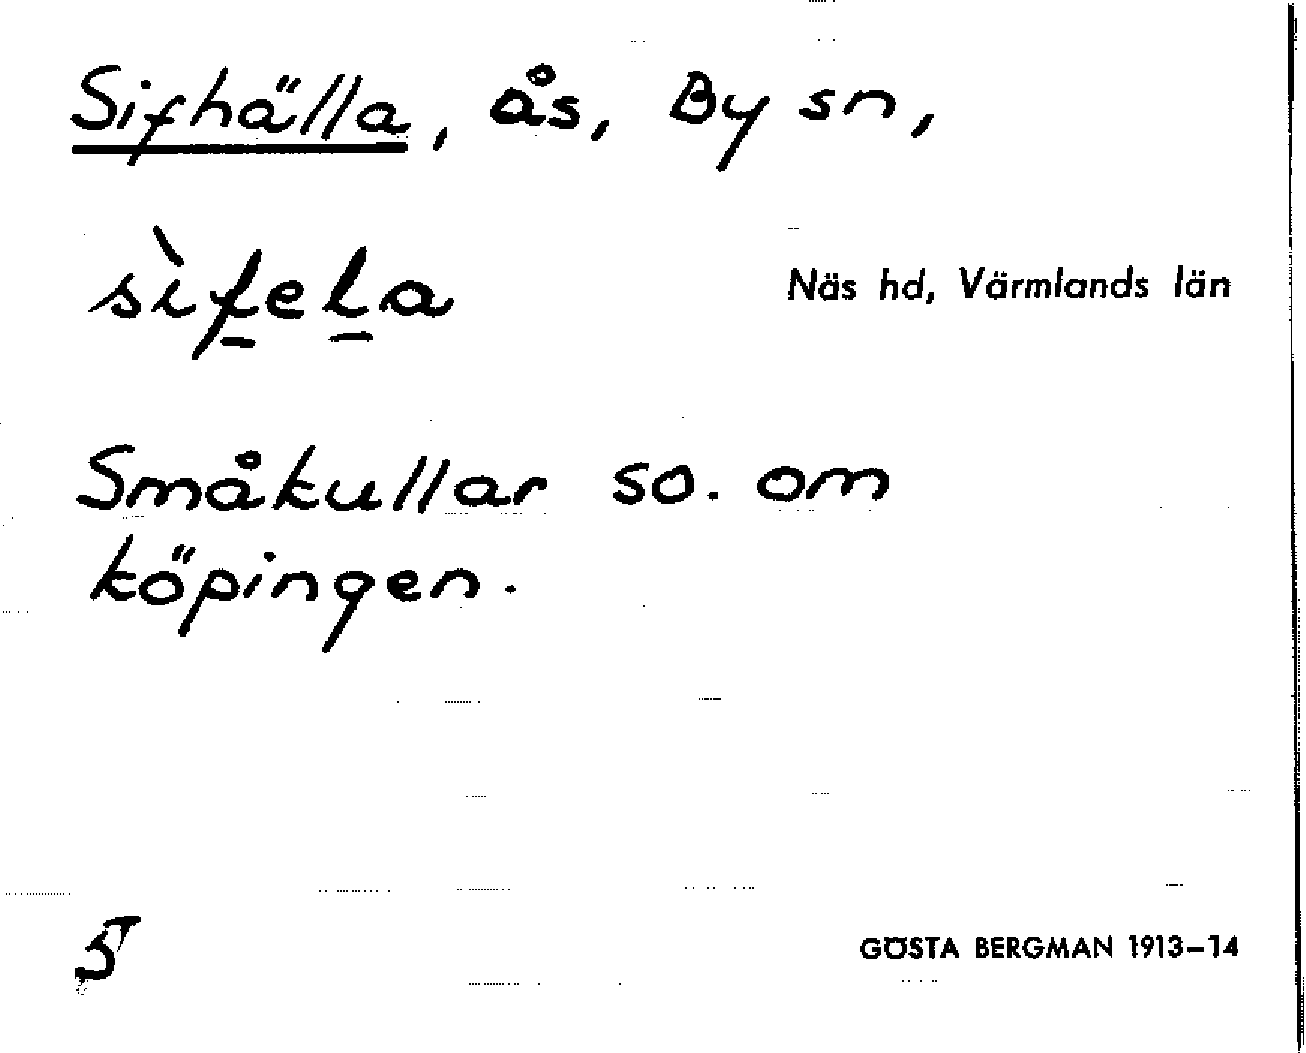 Sifhälla, ås, By sn,
sìf̲el̲a
Näs hd, Värmlands län
Småkullar so. om
köpingen.
5
GÖSTA BERGMAN 1913–14